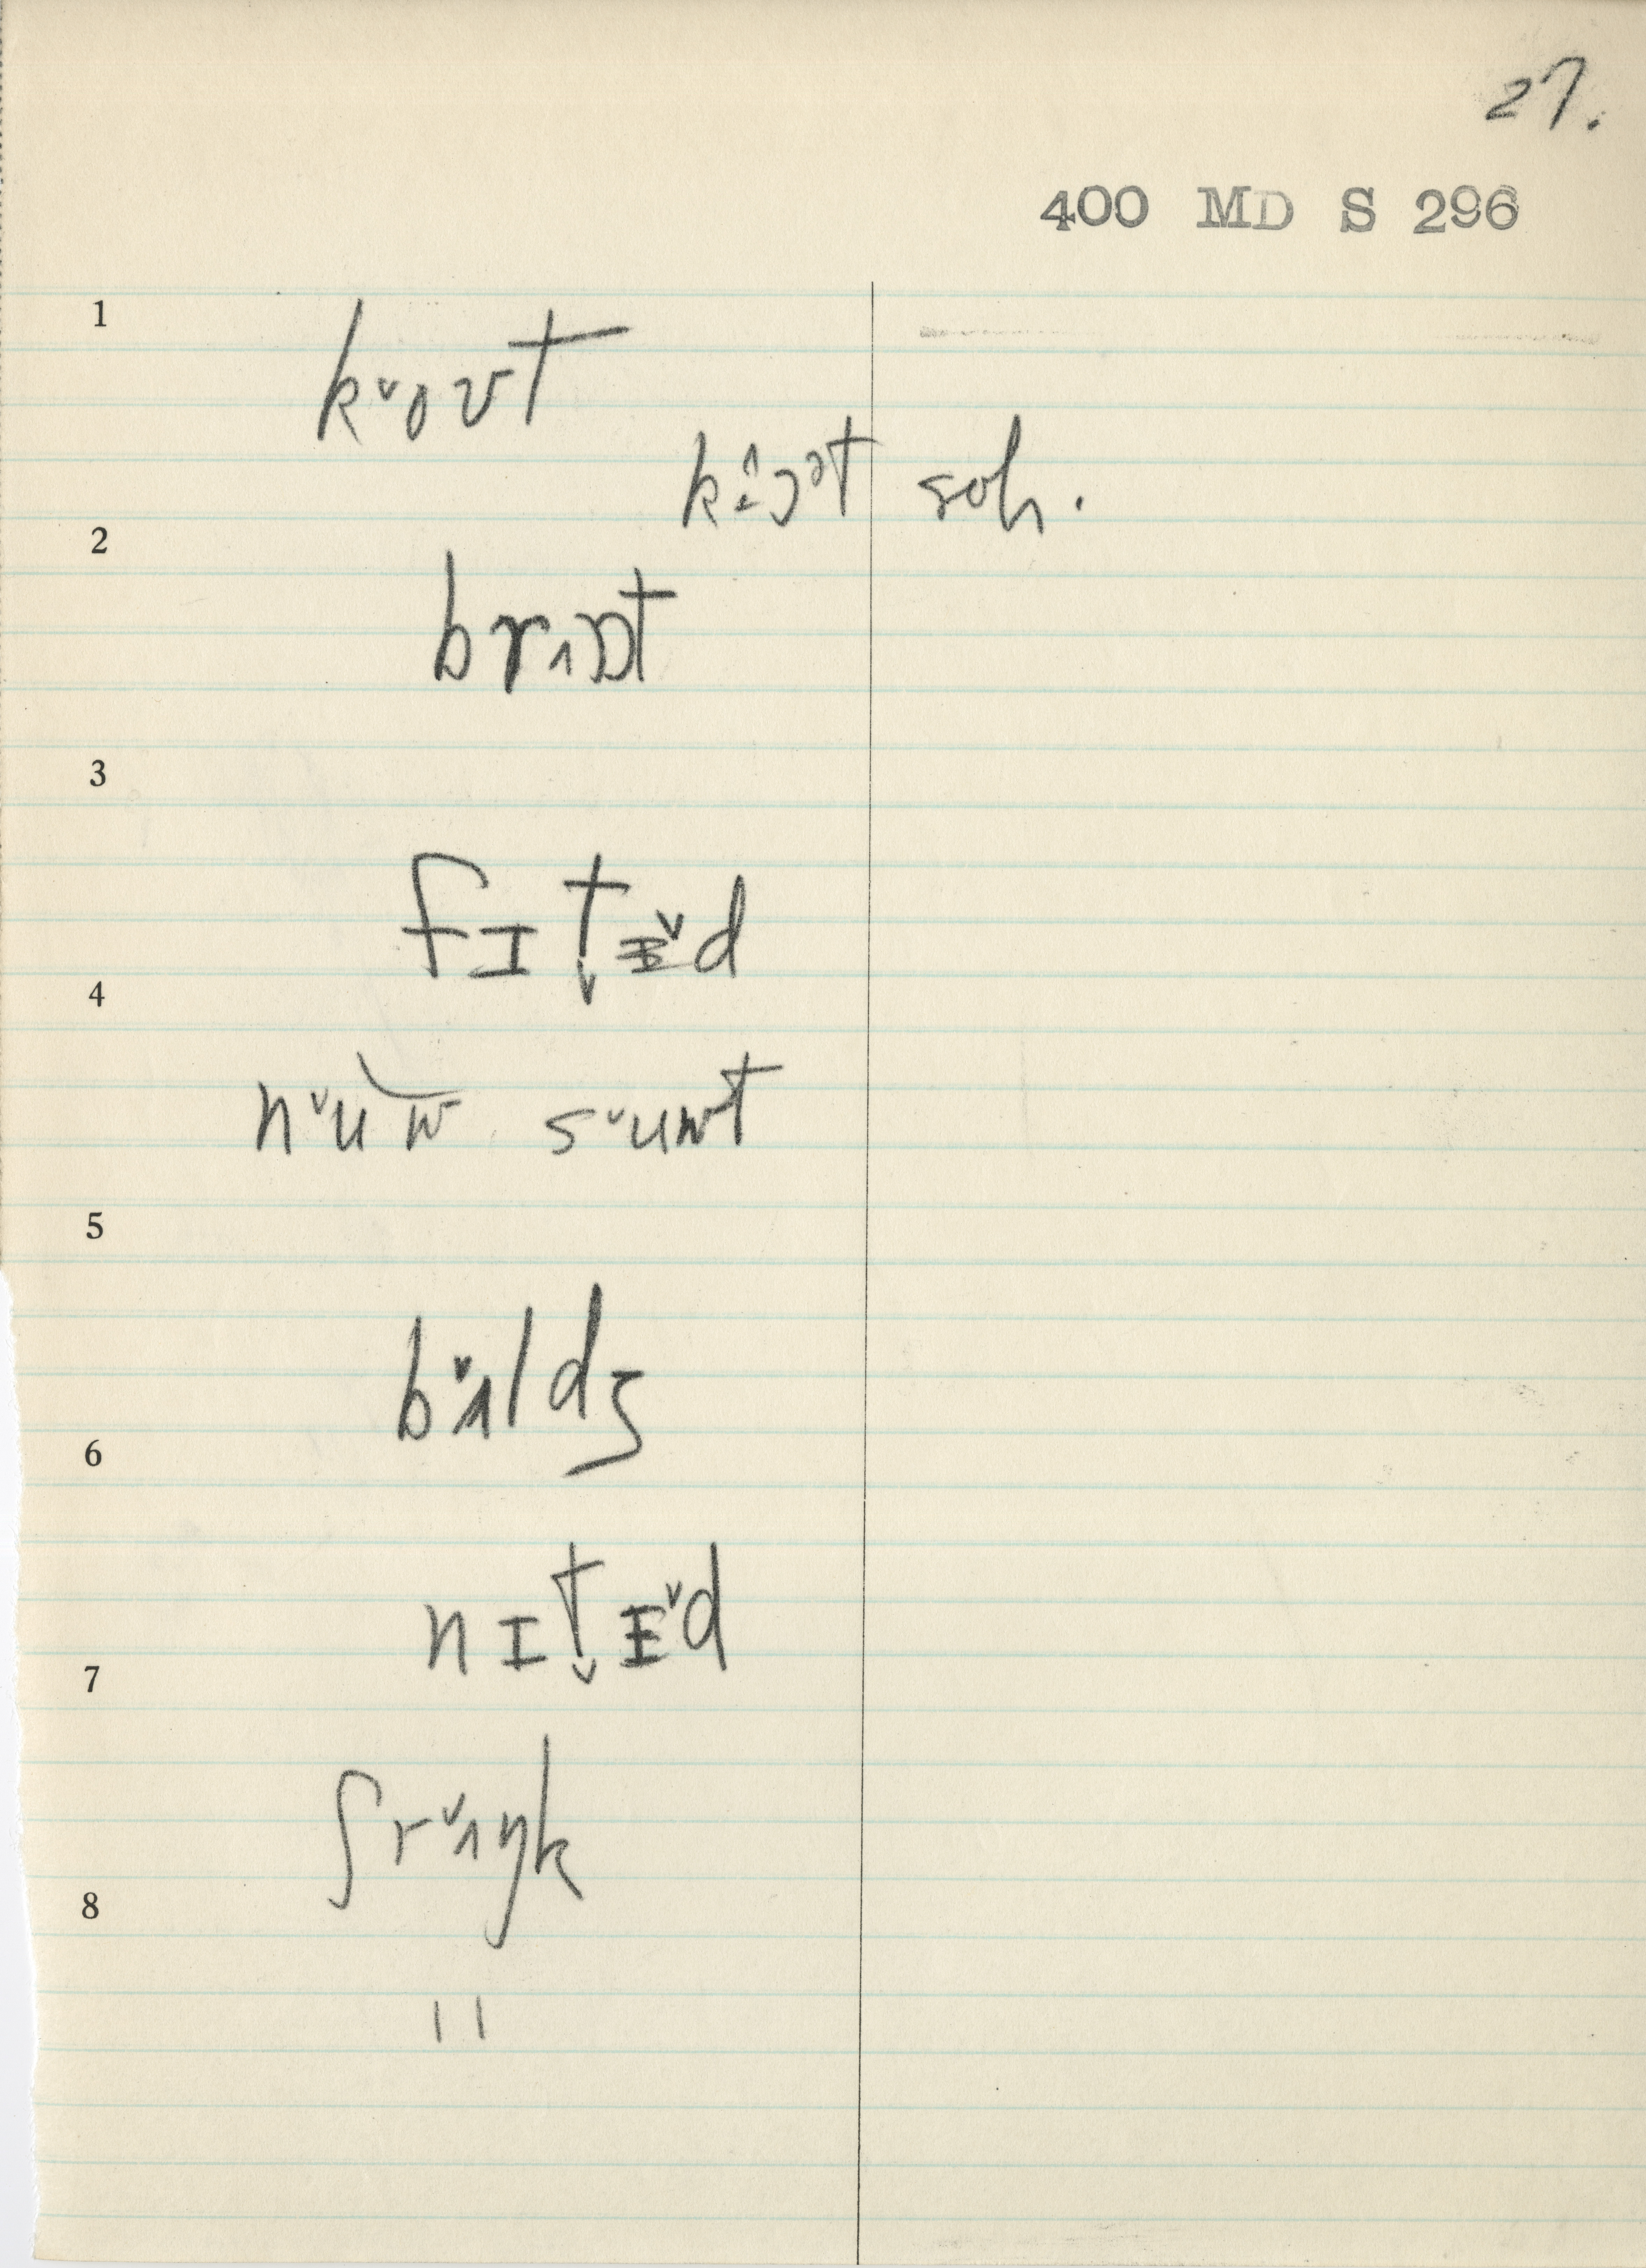 27.
400 MD S 296
1
k˅oʊt
kɔᵊt soh.
2
brʌɒt
3
fɪt̬ɪ˅d
4
n˅uw s˅uwt
5
b˅ʌldʒ
6
nɪt̬ɪ˅d
7
ʃr˅ʌŋk
8
"